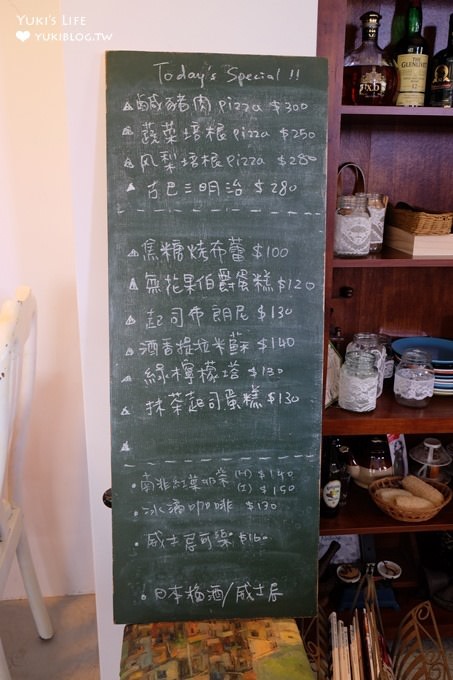 YUKI'S LIFE
YUKIBLOG.TW
Today's Special !!
鹹豬肉pizza $300
蔬菜培根pizza $250
凤梨培根pizza $280
古巴三明治 $280
焦糖烤布蕾 $100
無花果伯爵蛋糕 $120
起司布朗尼 $130
酒香提拉米蘇 $140
綠檸檬塔 $130
抹茶起司蛋糕 $130
南非紅葉奶茶 (H) $140
(I) $150
冰滴咖啡 $130
威士忌可樂 $160
日本梅酒/威士忌
THE
GLENLIVET
12